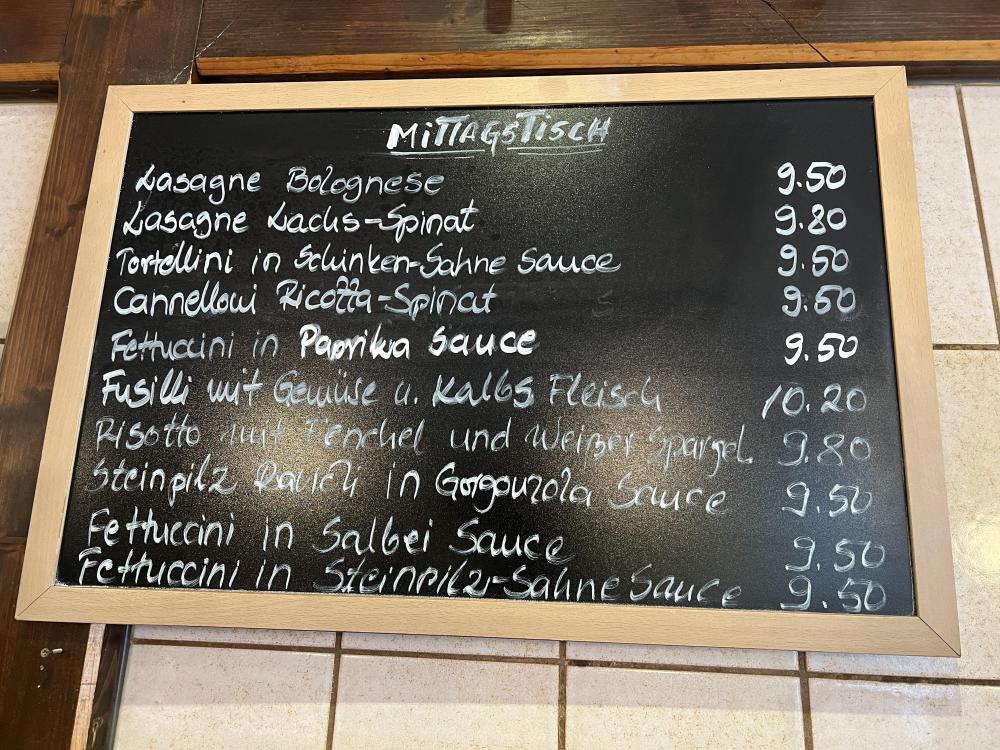 MITTAGSTISCH
Lasagne Bolognese 9.50
Lasagne Lachs-Spinat 9.80
Tortellini in Schinken-Sahne Sauce 9.50
Cannelloni Ricotta-Spinat 9.50
Fettuccini in Paprika Sauce 9.50
Fusilli mit Gemüse u. Kalbs Fleisch 10.20
Risotto mit Fenchel und Weißer Spargel 9.80
Steinpilz Ravioli in Gorgonzola Sauce 9.50
Fettuccini in Salbei Sauce 9.50
Fettuccini in Steinpilz-Sahne Sauce 9.50